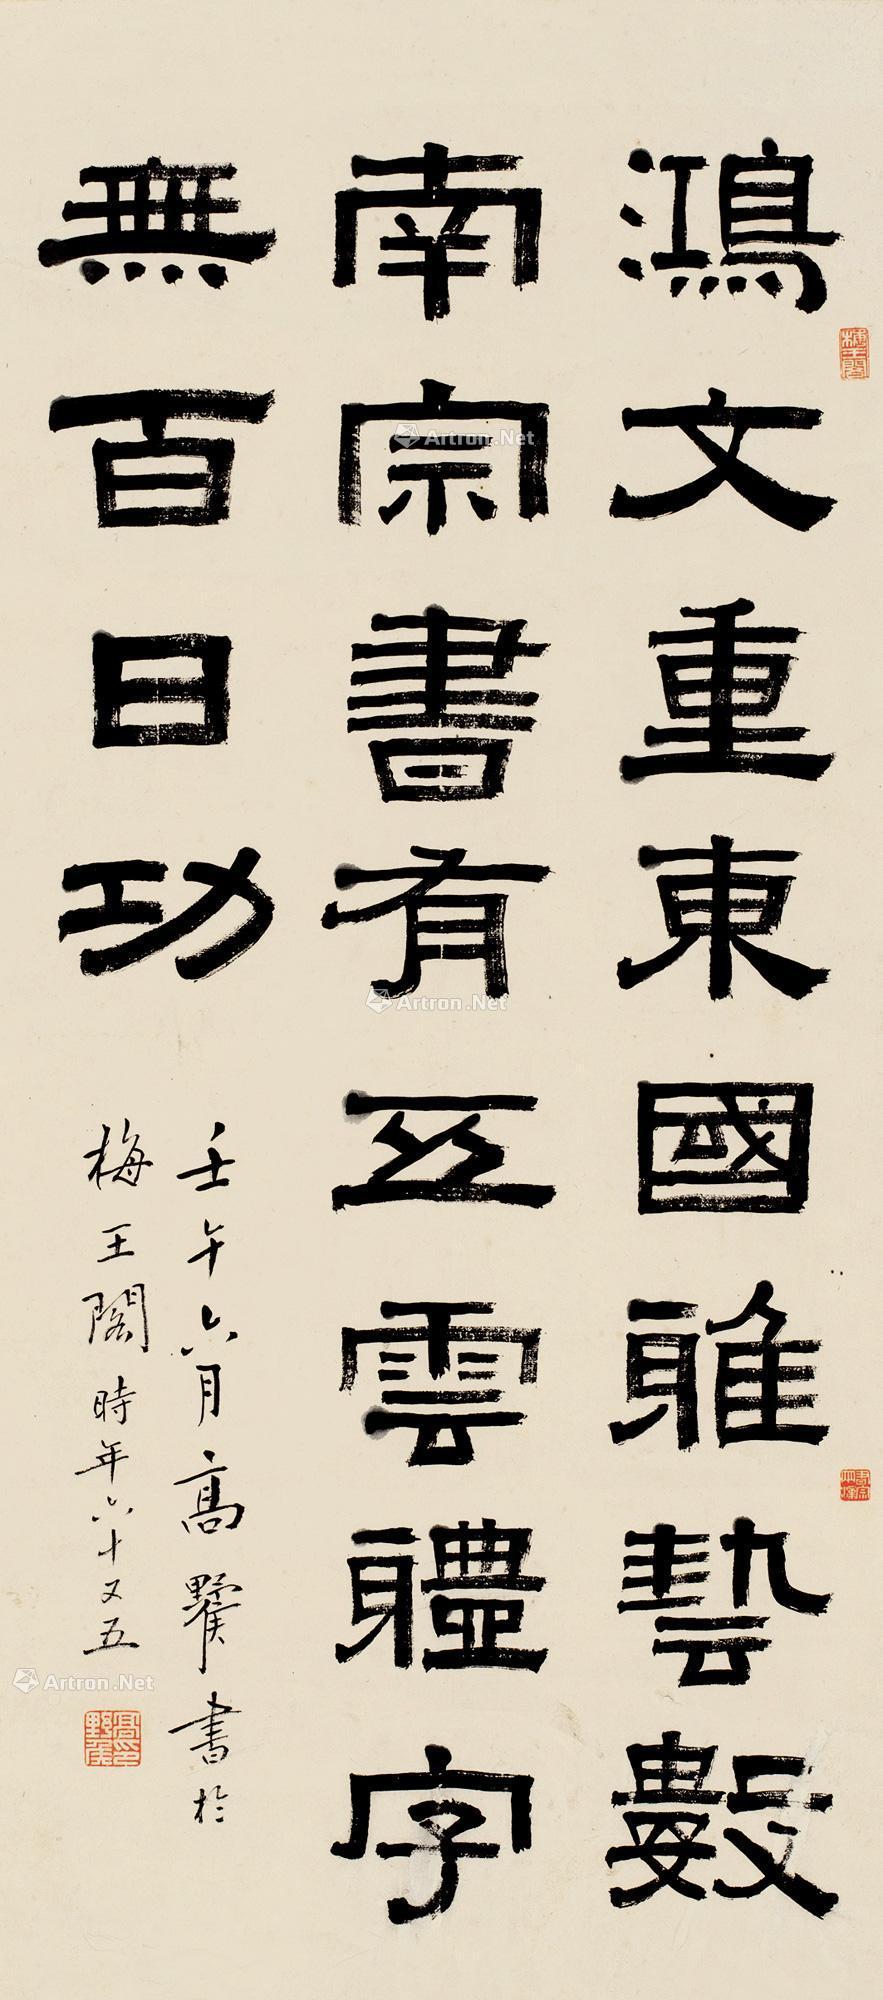 鴻文重東國雅藝數
南宗書有五雲體字
無百日功
壬午六月高野侯書於
梅王閣時年六十又五
梅王閣
Artron.Net
Artron.Net
Artron.Net